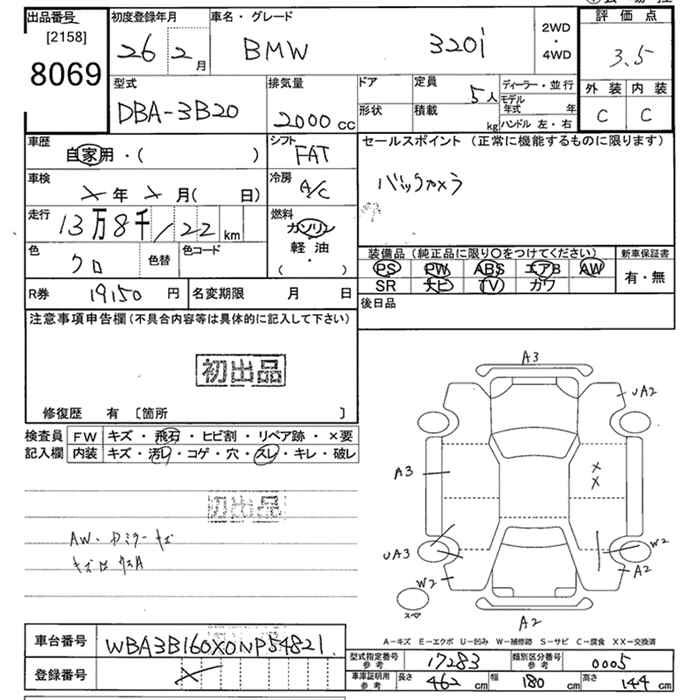 出品番号
[2158]
8069
初度登録年月
26 2 月
車名・グレード
BMW 320i
2WD
・
4WD
評価点
3.5
外装 内装
C C
型式
DBA-3B20
排気量
2000 CC
ドア
形状
定員 5人
積載 kg
ディーラー・並行
モデル年式 年
ハンドル 左・右
車歴
自家用・( )
シフト
FAT
セールスポイント (正常に機能するものに限ります)
バックカメラ
車検
× 年 × 月( 日)
冷房
A/C
走行
13万8千122 km
燃料
ガソリン
軽・油
( ・ )
色
クロ
色替
色コード
装備品 (純正品に限り〇をつけてください)
PS PW ABS エアB AW
SR ナビ TV カワ
新車保証書
有・無
R券 19150 円
名変期限 月 日
後日品
注意事項申告欄 (不具合内容等は具体的に記入して下さい)
初出品
修復歴 有 〔箇所 〕
検査員
記入欄
FW キズ・飛石・ヒビ割・リペア跡・×要
内装 キズ・汚レ・コゲ・穴・スレ・キレ・破レ
初出品
AW・ドミラーキズ
A3
UA2
A3
×
×
UA3
W2
W2
A2
スペア
A2
A-キズ E-エクボ U-凹み W-補修跡 S-サビ C-腐食 XX-交換済
車台番号
WBA3B160X0NP54821
登録番号
×
型式指定番号
参考
17283
類別区分番号
参考
0005
車庫証明用
参考
長さ 462 cm
幅 180 cm
高さ 144 cm